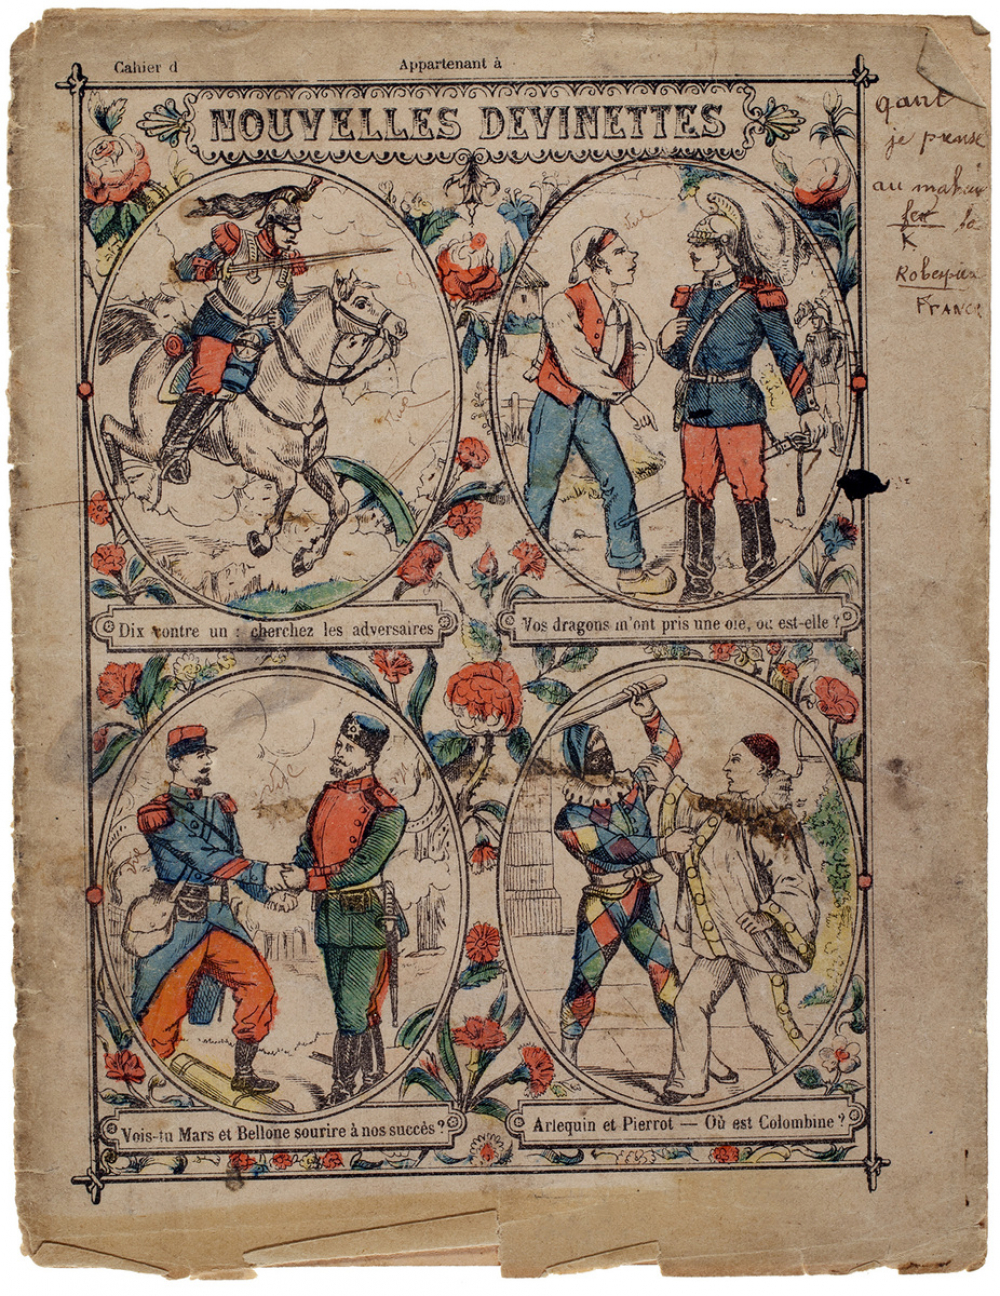 Cahier d
Appartenant à
NOUVELLES DEVINETTES
Dix contre un : cherchez les adversaires
Vos dragons m'ont pris une oie, où est-elle ?
Vois-tu Mars et Bellone sourire à nos succès ?
Arlequin et Pierrot — Où est Colombine ?
qant
je pense
au
K
FRANCE